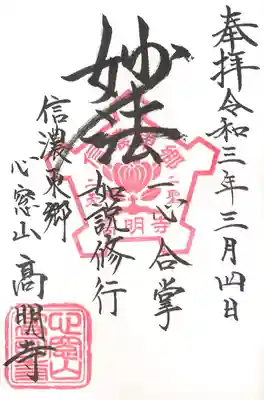 奉拝令和三年三月四日
一心合掌
妙法
如説修行
信濃東郷
心窓山
高明寺